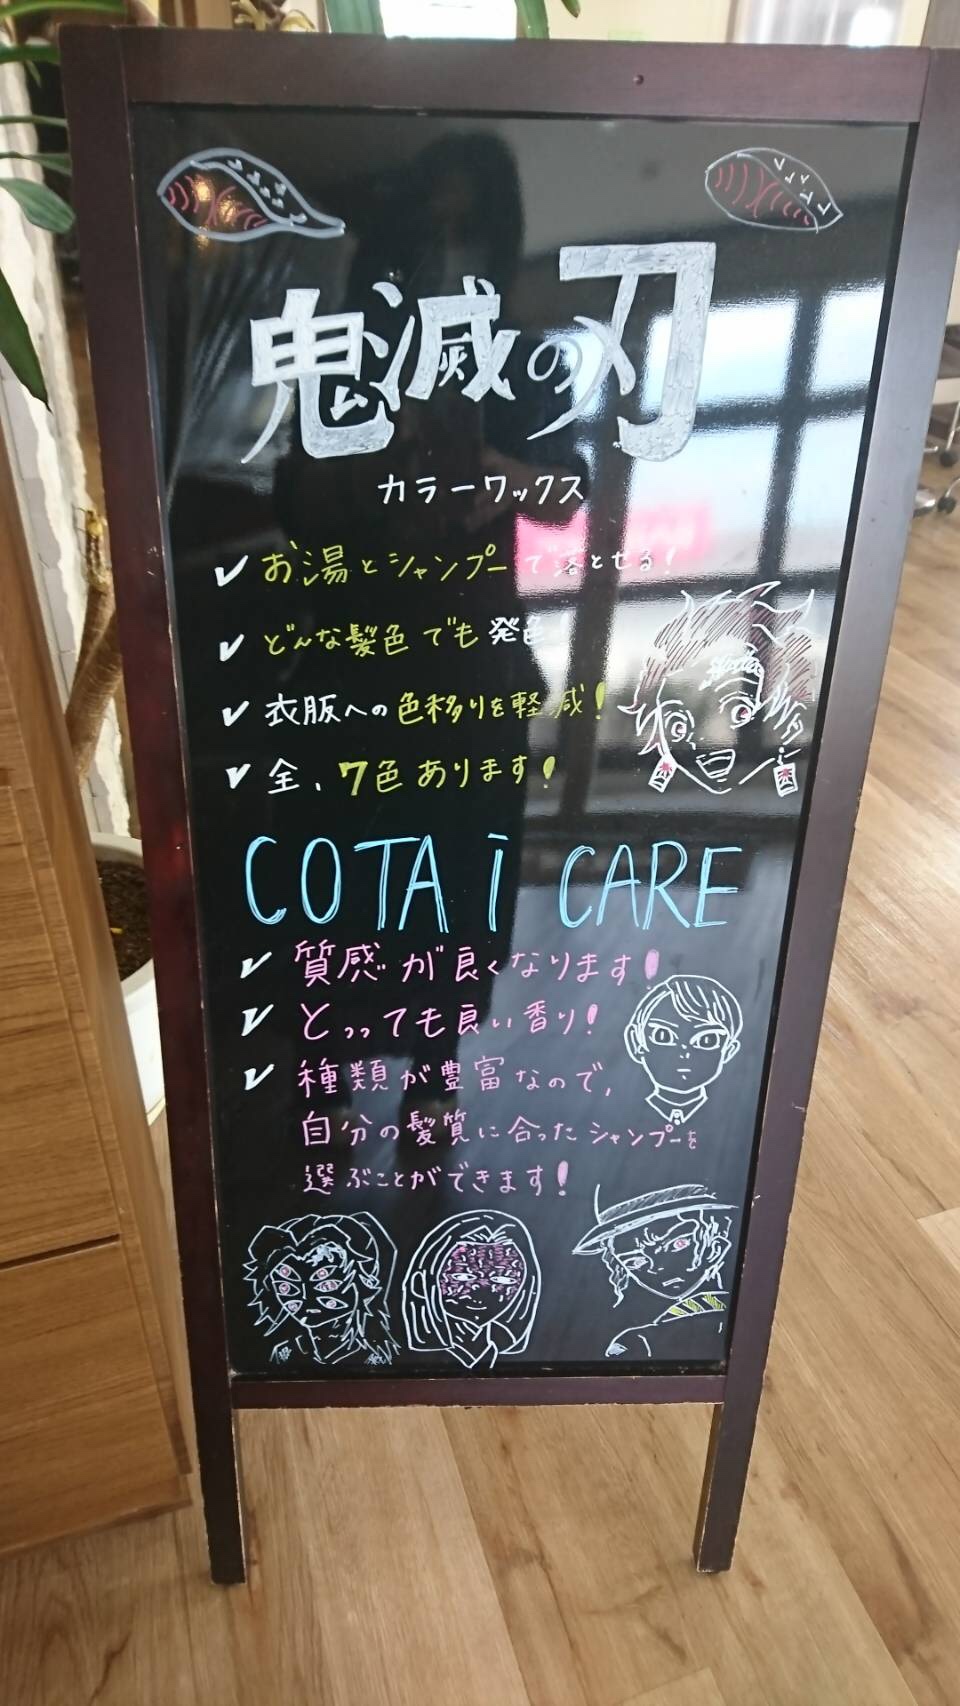 鬼滅の刃
カラーワックス
✓ お湯とシャンプーで落とせる!
✓ どんな髪色でも発色!
✓ 衣服への色移りを軽減!
✓ 全、7色あります!
COTA i CARE
✓ 質感が良くなります!
✓ とっっても良い香り!
✓ 種類が豊富なので、
自分の髪質に合ったシャンプーを
選ぶことができます!